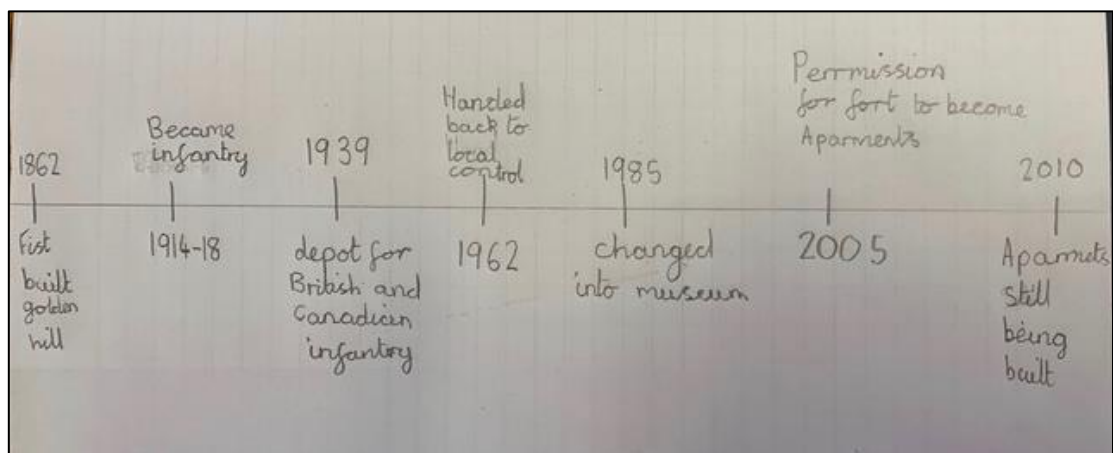 1862
Fist
built
golden
hill
Became
infantry
1914-18
1939
depot for
British and
Canadian
infantry
Handed
back to
local
control
1962
1985
changed
into museum
Perrmission
for fort to become
Aparments
2005
2010
Aparmets
still
being
built